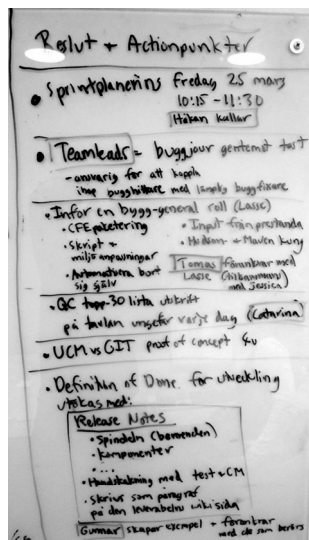 Beslut + Actionpunkter
• Sprintplanering Fredag 25 mars
10:15 - 11:30
Håkan kallar
• Teamleads = buggjour gentemot test
- ansvarig för att koppla
ihop bugghittare med lämplig buggfixare
• Inför en bygg-general roll (Lasse)
• CFE paketering
• Skript +
miljöanpassningar
• Automatisera bort
sig själv
• Input från prestanda
• Hudson + Maven kung
Tomas förankrar med
Lasse (tillsammans
med Jessica)
• QC topp-30 lista utskrift
på tavlan ungefär varje dag (Catarina)
• UCM vs GIT proof of concept
• Definition of Done för utveckling
utökas med:
Release Notes
• Spindeln (beroenden)
• Komponenter
• ....
• Handskakning med test + CM
• Skrivs som paragraf
på den leverabelns wikisida
Gunnar skapar exempel + förankrar
med de som berörs